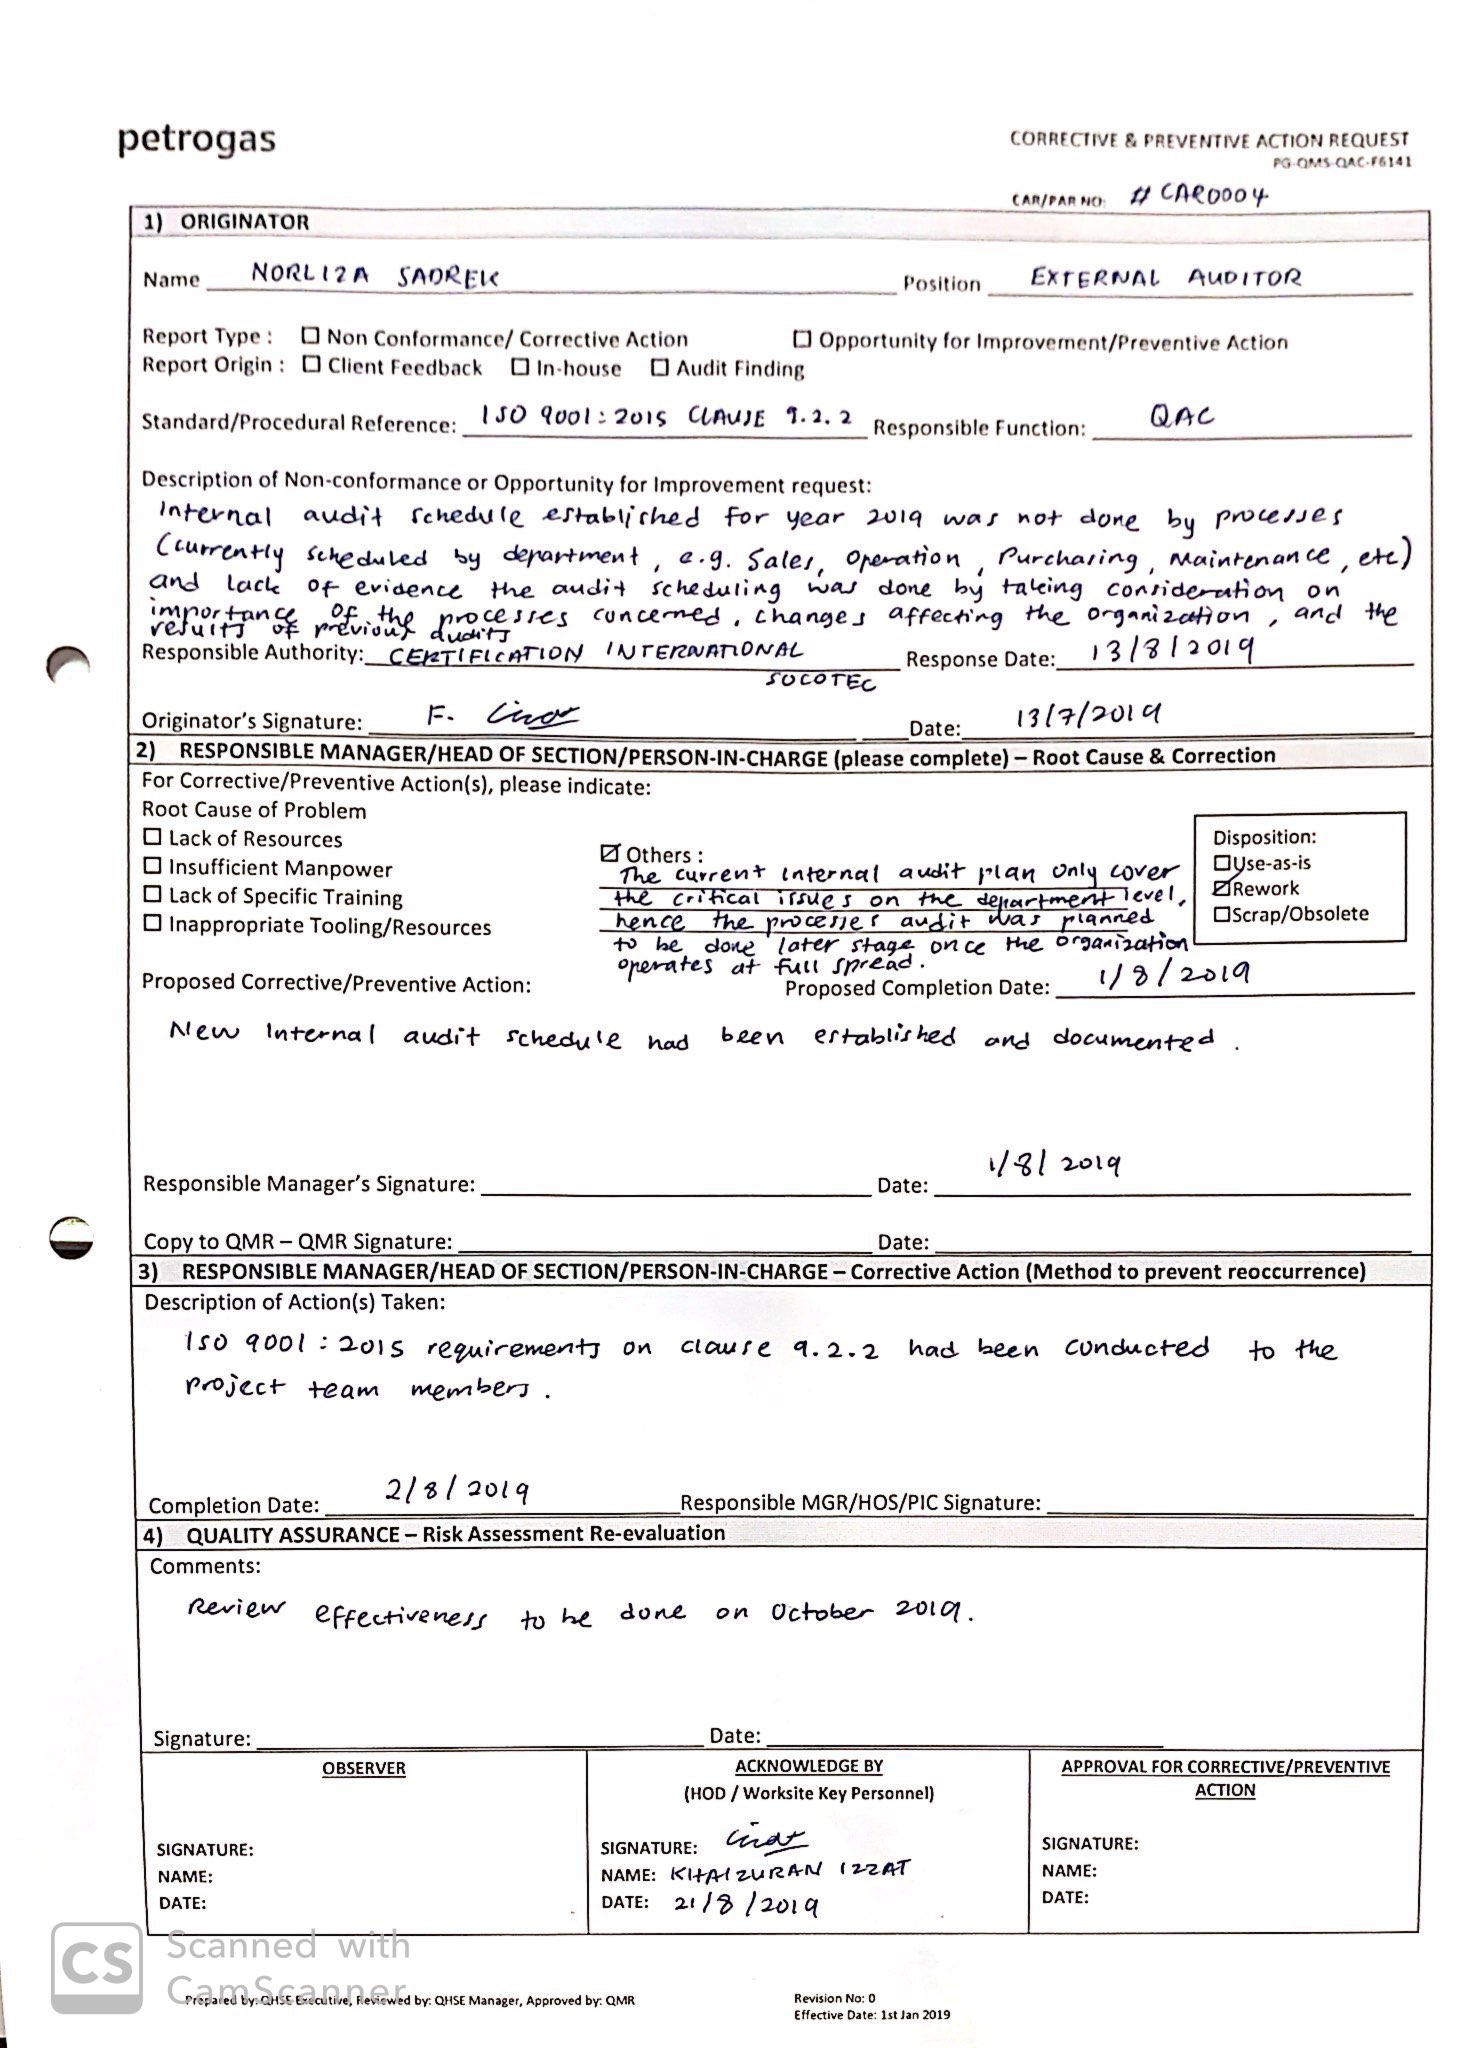 petrogas
CORRECTIVE & PREVENTIVE ACTION REQUEST
PG-QMS-QAC-F6141
CAR/PAR NO: # CAR0004
1) ORIGINATOR
Name NORLIZA SADREK Position EXTERNAL AUDITOR
Report Type : ☐ Non Conformance/ Corrective Action ☐ Opportunity for Improvement/Preventive Action
Report Origin : ☐ Client Feedback ☐ In-house ☐ Audit Finding
Standard/Procedural Reference: ISO 9001:2015 CLAUSE 9.2.2 Responsible Function: QAC
Description of Non-conformance or Opportunity for Improvement request:
Internal audit schedule established for year 2019 was not done by processes
(currently scheduled by department, e.g. Sales, Operation, Purchasing, Maintenance, etc)
and lack of evidence the audit scheduling was done by taking consideration on
importance of the processes concerned, changes affecting the organization, and the
results of previous audits
Responsible Authority: CERTIFICATION INTERNATIONAL Response Date: 13/8/2019
SOCOTEC
Originator's Signature: F. Date: 13/7/2019
2) RESPONSIBLE MANAGER/HEAD OF SECTION/PERSON-IN-CHARGE (please complete) – Root Cause & Correction
For Corrective/Preventive Action(s), please indicate:
Root Cause of Problem
☐ Lack of Resources
☐ Insufficient Manpower
☐ Lack of Specific Training
☐ Inappropriate Tooling/Resources
☑ Others :
The current internal audit plan only cover
the critical issues on the department level,
hence the processes audit was planned
to be done later stage once the organization
operates at full spread.
Disposition:
☐Use-as-is
☑Rework
☐Scrap/Obsolete
Proposed Corrective/Preventive Action: Proposed Completion Date: 1/8/2019
New Internal audit schedule had been established and documented.
Responsible Manager's Signature: Date: 1/8/2019
Copy to QMR – QMR Signature: Date:
3) RESPONSIBLE MANAGER/HEAD OF SECTION/PERSON-IN-CHARGE – Corrective Action (Method to prevent reoccurrence)
Description of Action(s) Taken:
ISO 9001:2015 requirements on clause 9.2.2 had been conducted to the
project team members.
Completion Date: 2/8/2019 Responsible MGR/HOS/PIC Signature:
4) QUALITY ASSURANCE – Risk Assessment Re-evaluation
Comments:
Review effectiveness to be done on October 2019.
Signature: Date:
OBSERVER
SIGNATURE:
NAME:
DATE:
ACKNOWLEDGE BY
(HOD / Worksite Key Personnel)
SIGNATURE:
NAME: KHAIZURAN IZZAT
DATE: 21/8/2019
APPROVAL FOR CORRECTIVE/PREVENTIVE
ACTION
SIGNATURE:
NAME:
DATE:
CS Scanned with
CamScanner
Prepared by: QHSE Executive, Reviewed by: QHSE Manager, Approved by: QMR
Revision No: 0
Effective Date: 1st Jan 2019